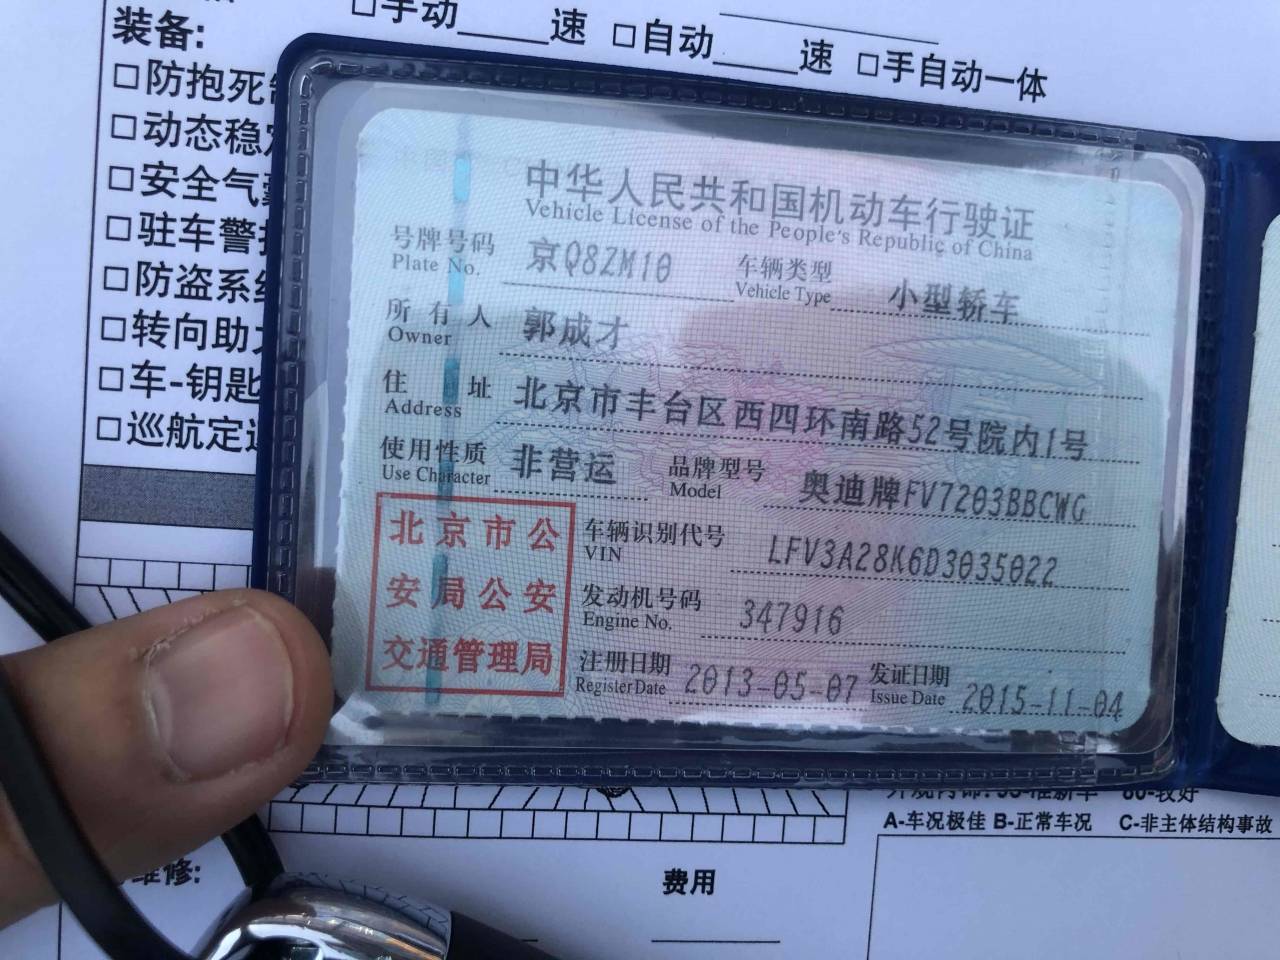 □手动____速 □自动____速 □手自动一体
装备:
□防抱死
□动态稳
□安全气
□驻车警
□防盗系
□转向助
□车-钥匙
□巡航定
中华人民共和国机动车行驶证
Vehicle License of the People's Republic of China
号牌号码 京Q8ZM10 车辆类型 小型轿车
Plate No. Vehicle Type
所有人 郭成才
Owner
住址 北京市丰台区西四环南路52号院内1号
Address
使用性质 非营运 品牌型号 奥迪牌FV7203BBCWG
Use Character Model
北京市公
安局公安
交通管理局
车辆识别代号 LFV3A28K6D3035022
VIN
发动机号码 347916
Engine No.
注册日期 2013-05-07 发证日期 2015-11-04
Register Date Issue Date
A-车况极佳 B-正常车况 C-非主体结构事故
维修:
费用